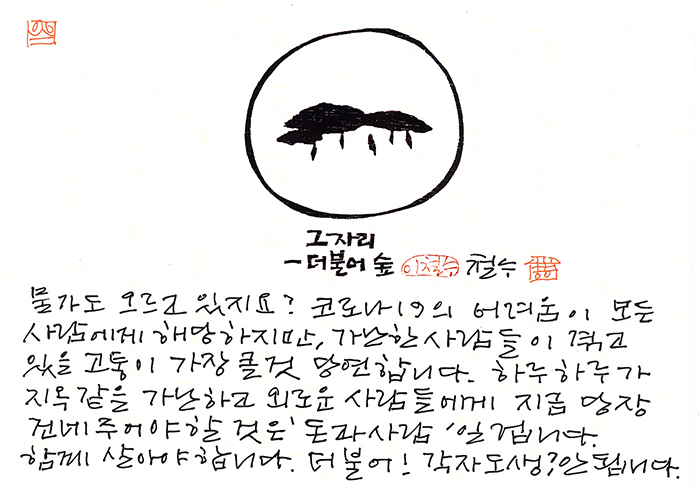 그 자리
- 더불어 숲 이철수 철수
물가도 오르고 있지요? 코로나19의 어려움이 모든
사람에게 해당하지만, 가난한 사람들이 겪고
있을 고통이 가장 클 것 당연합니다. 하루하루가
지옥같을 가난하고 외로운 사람들에게 지금 당장
건네주어야 할 것은 '돈과 사람'일 겁니다.
함께 살아야 합니다. 더불어! 각자도생? 안됩니다.